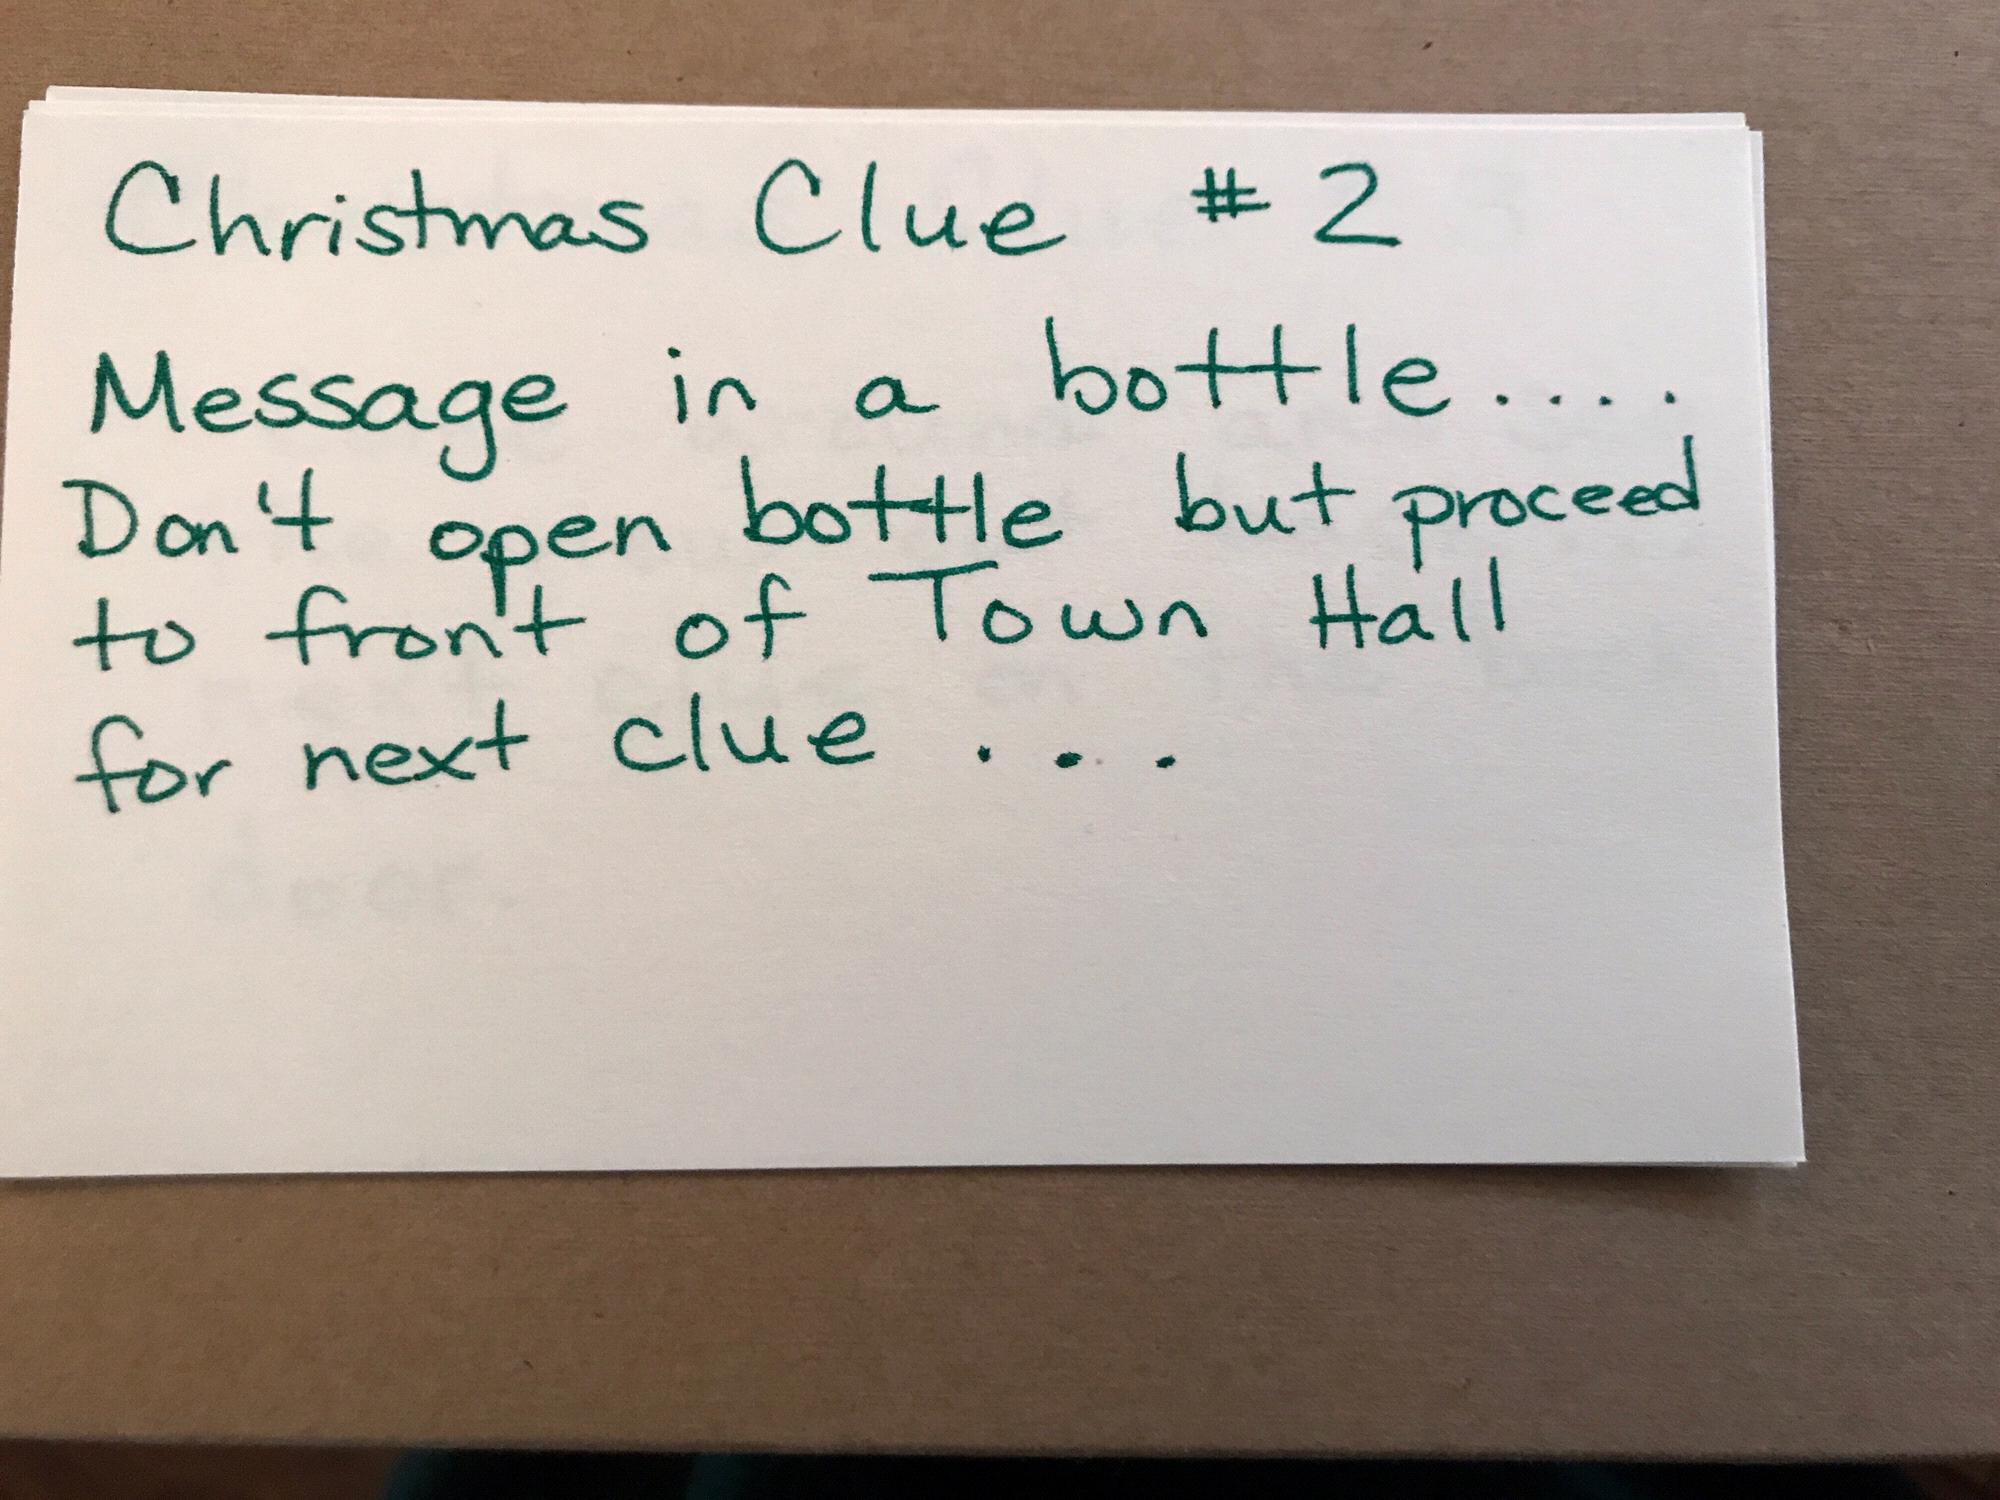 Christmas Clue # 2
Message in a bottle....
Don't open bottle but proceed
to front of Town Hall
for next clue ...
door.